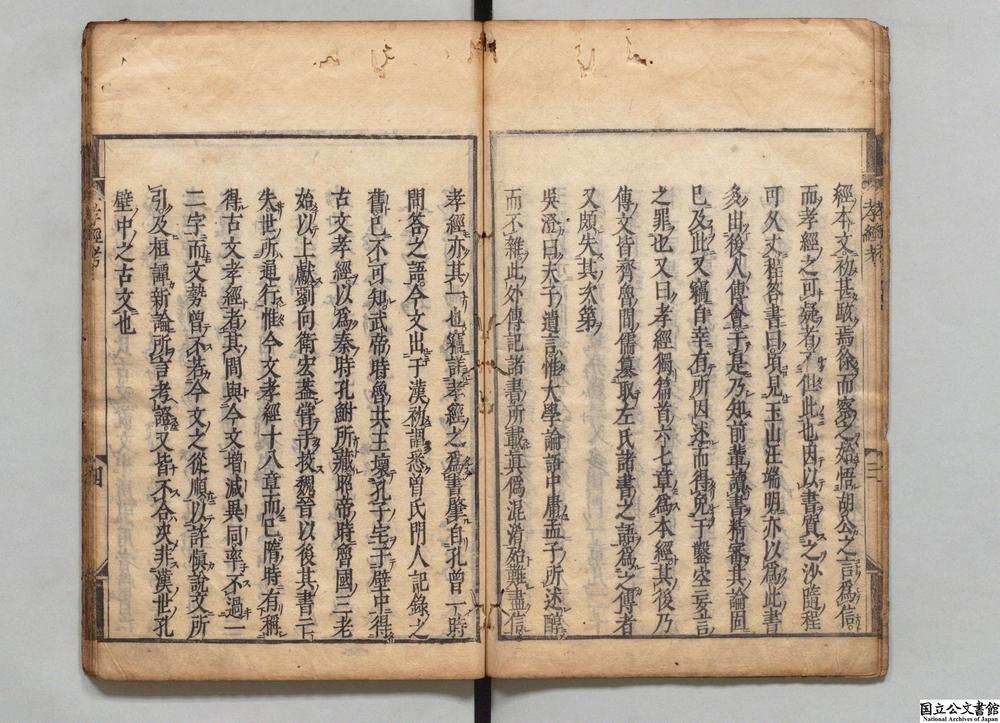 經本文初甚駭焉徐而察之始悟胡公之言爲信
而孝經之可疑者不但此也因以書質之沙隨程
可久丈程答書曰頃見玉山汪端明亦以爲此書
多出後人傅會于是乃知前輩讀書精審其論固
已及此又竊自幸有所因述而得免于鑿空妄言
之罪也又曰孝經獨篇首六七章爲本經其後乃
傳文皆齊魯間儒纂取左氏諸書之語爲之傳者
又頗失其次第
吳澄曰夫子遺言惟大學論語中庸孟子所述醇
而不雜此外傳記諸書所載眞僞混淆殆難盡信
孝經考
三
孝經亦其一也竊詳孝經之爲書肇自孔曾一時
問答之語今文出于漢初謂悉曾氏門人記錄之
舊已不可知武帝時魯共王壞孔子宅于壁中得
古文孝經以爲秦時孔鮒所藏昭帝時魯國三老
始以上獻劉向衛宏蓋嘗手校魏晉以後其書亡
失世所通行惟今文孝經十八章而已隋時有稱
得古文孝經者其間與今文增減異同率不過一
二字而文勢曾不若今文之從順以許愼說文所
引及桓譚新論所言考證又皆不合決非漢世孔
壁中之古文也
孝經考
四
国立公文書館
National Archives of Japan